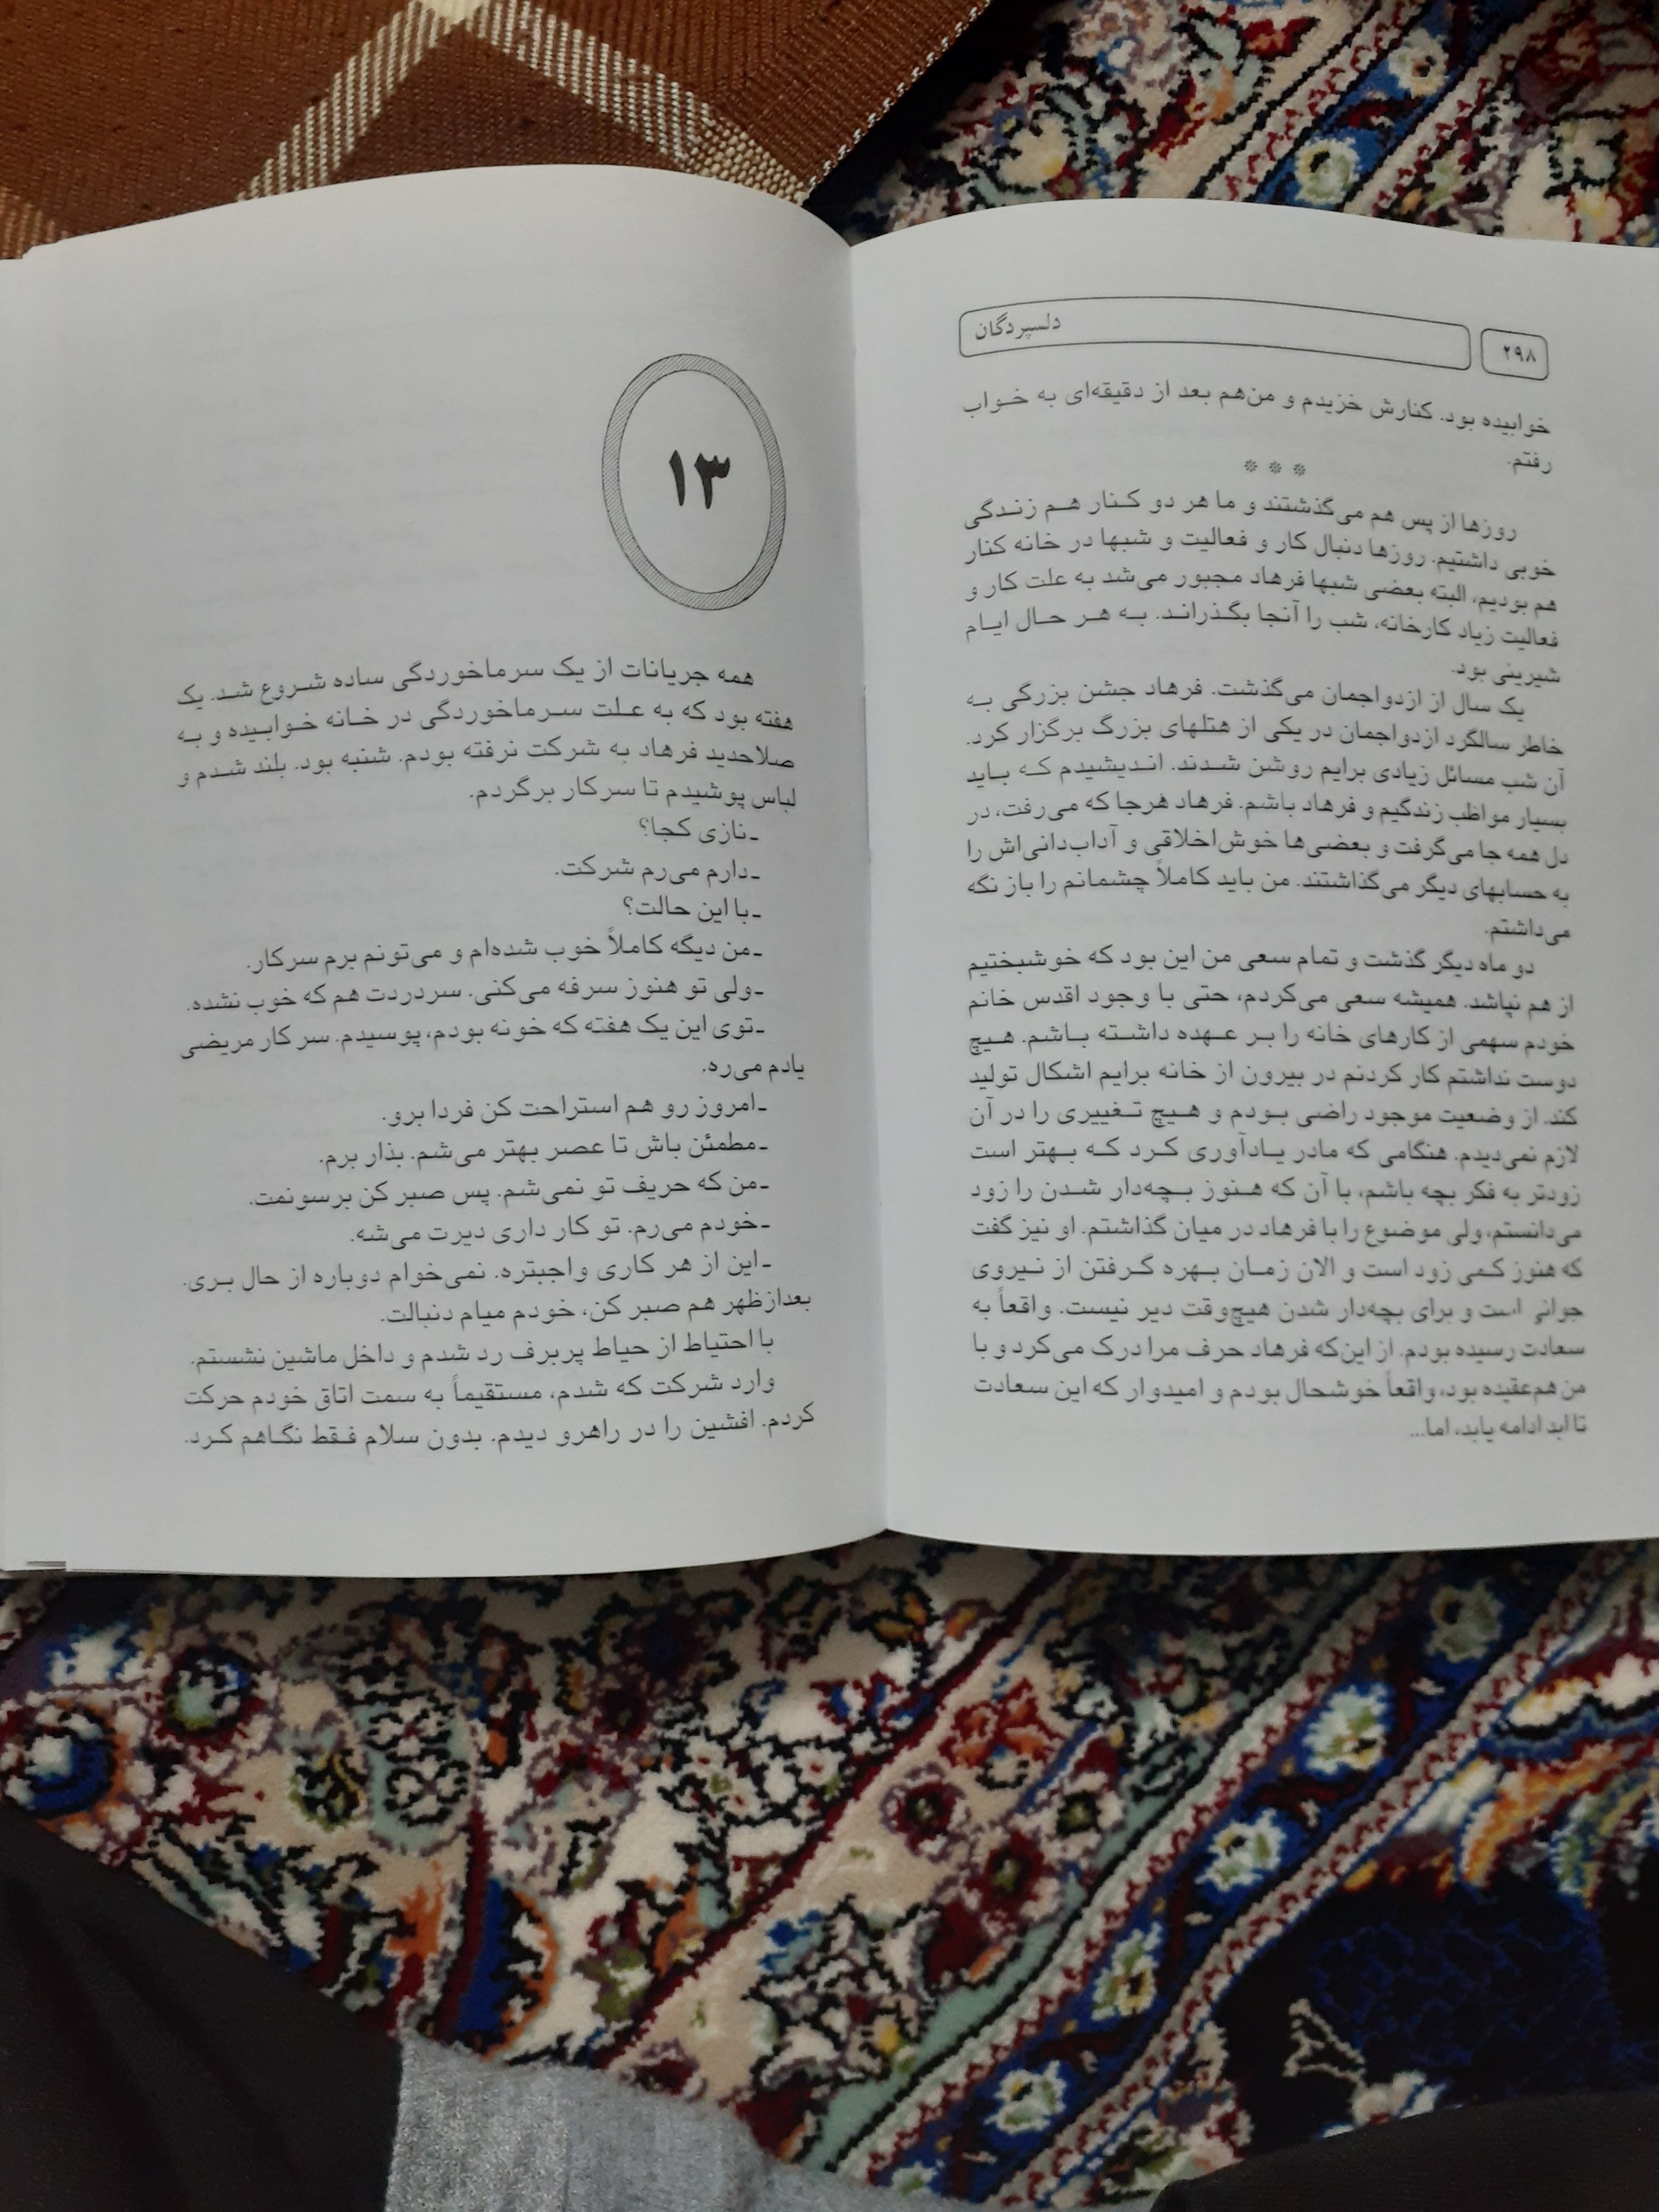 ۲۹۸
دلسپردگان
خوابیده بود. کنارش خزیدم و من‌هم بعد از دقیقه‌ای به خواب
رفتم.
* * *
روزها از پس هم می‌گذشتند و ما هر دو کنار هم زندگی
خوبی داشتیم. روزها دنبال کار و فعالیت و شبها در خانه کنار
هم بودیم، البته بعضی شبها فرهاد مجبور می‌شد به علت کار و
فعالیت زیاد کارخانه، شب را آنجا بگذراند. به هر حال ایام
شیرینی بود.
یک سال از ازدواجمان می‌گذشت. فرهاد جشن بزرگی به
خاطر سالگرد ازدواجمان در یکی از هتلهای بزرگ برگزار کرد.
آن شب مسائل زیادی برایم روشن شدند. اندیشیدم که باید
بسیار مواظب زندگیم و فرهاد باشم. فرهاد هرجا که می‌رفت، در
دل همه جا می‌گرفت و بعضی‌ها خوش‌اخلاقی و آداب‌دانی‌اش را
به حسابهای دیگر می‌گذاشتند. من باید کاملاً چشمانم را باز نگه
می‌داشتم.
دو ماه دیگر گذشت و تمام سعی من این بود که خوشبختیم
از هم نپاشد. همیشه سعی می‌کردم، حتی با وجود اقدس خانم
خودم سهمی از کارهای خانه را بر عهده داشته باشم. هیچ
دوست نداشتم کار کردنم در بیرون از خانه برایم اشکال تولید
کند. از وضعیت موجود راضی بودم و هیچ تغییری را در آن
لازم نمی‌دیدم. هنگامی که مادر یادآوری کرد که بهتر است
زودتر به فکر بچه باشم، با آن که هنوز بچه‌دار شدن را زود
می‌دانستم، ولی موضوع را با فرهاد در میان گذاشتم. او نیز گفت
که هنوز کمی زود است و الان زمان بهره گرفتن از نیروی
جوانی است و برای بچه‌دار شدن هیچ‌وقت دیر نیست. واقعاً به
سعادت رسیده بودم. از این‌که فرهاد حرف مرا درک می‌کرد و با
من هم‌عقیده بود، واقعاً خوشحال بودم و امیدوار که این سعادت
تا ابد ادامه یابد، اما...
۱۳
همه جریانات از یک سرماخوردگی ساده شروع شد. یک
هفته بود که به علت سرماخوردگی در خانه خوابیده و به
صلاحدید فرهاد به شرکت نرفته بودم. شنبه بود. بلند شدم و
لباس پوشیدم تا سرکار برگردم.
ـ نازی کجا؟
ـ دارم می‌رم شرکت.
ـ با این حالت؟
ـ من دیگه کاملاً خوب شده‌ام و می‌تونم برم سرکار.
ـ ولی تو هنوز سرفه می‌کنی. سردردت هم که خوب نشده.
ـ توی این یک هفته که خونه بودم، پوسیدم. سر کار مریضی
یادم می‌ره.
ـ امروز رو هم استراحت کن فردا برو.
ـ مطمئن باش تا عصر بهتر می‌شم. بذار برم.
ـ من که حریف تو نمی‌شم. پس صبر کن برسونمت.
ـ خودم می‌رم. تو کار داری دیرت می‌شه.
ـ این از هر کاری واجبتره. نمی‌خوام دوباره از حال بری.
بعدازظهر هم صبر کن، خودم میام دنبالت.
با احتیاط از حیاط پربرف رد شدم و داخل ماشین نشستم.
وارد شرکت که شدم، مستقیماً به سمت اتاق خودم حرکت
کردم. افشین را در راهرو دیدم. بدون سلام فقط نگاهم کرد.